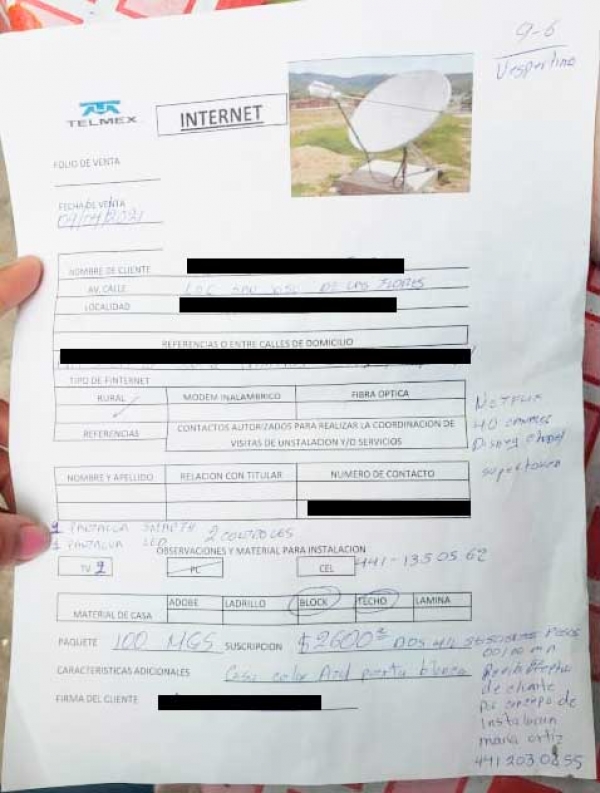 9-6
Vespertino
TELMEX
INTERNET
FOLIO DE VENTA
FECHA DE VENTA
09/04/2021
NOMBRE DE CLIENTE
AV. CALLE LOC SAN JOSE DE LAS FLORES
LOCALIDAD
REFERENCIAS O ENTRE CALLES DE DOMICILIO
TIPO DE FINTERNET
RURAL MODEM INALAMBRICO FIBRA OPTICA
REFERENCIAS CONTACTOS AUTORIZADOS PARA REALIZAR LA COORDINACION DE
VISITAS DE UNSTALACION Y/O SERVICIOS
Netflix
40 canales
Disney
NOMBRE Y APELLIDO RELACION CON TITULAR NUMERO DE CONTACTO
1 PANTALLA SMARTH 2 CONTROLES
1 PANTALLA LED
OBSERVACIONES Y MATERIAL PARA INSTALACION
TV 2 PC CEL 441-135 05 62
MATERIAL DE CASA ADOBE LADRILLO BLOCK TECHO LAMINA
PAQUETE 100 MGS SUSCRIPCION $2600 DOS mil seiscientos pesos
00/00 mn
CARACTERISTICAS ADICIONALES Casa color Azul puerta blanca
FIRMA DEL CLIENTE
de cliente
por concepto de
Instalacion
maria ortiz
441 203 0855